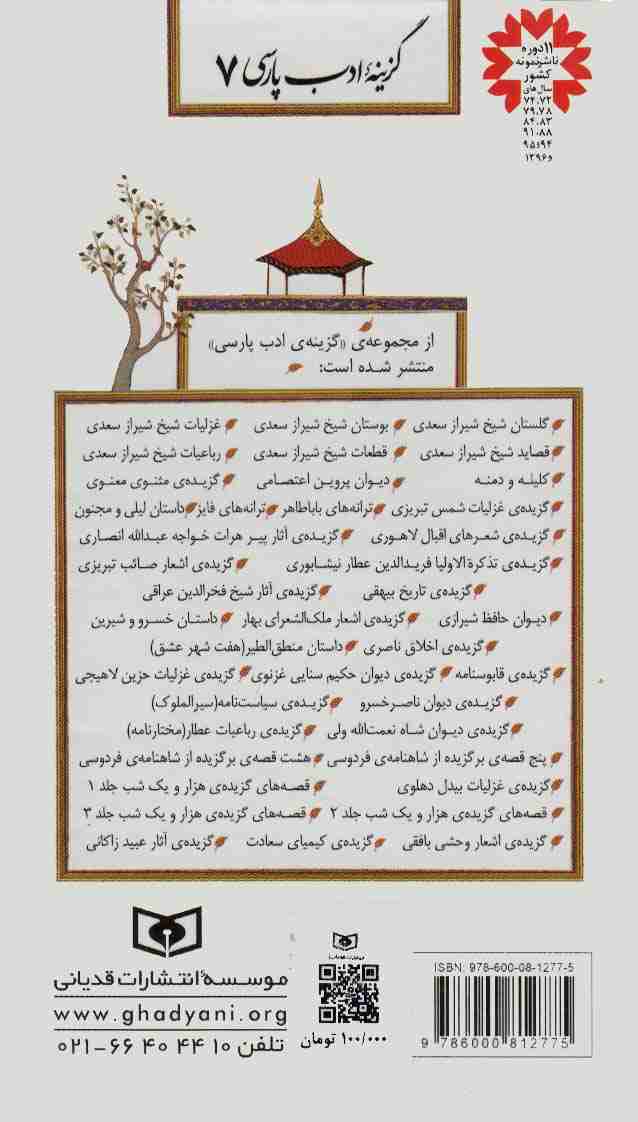 گزینهٔ ادب پارسی ۷
۱۱ دوره
ناشر نمونه
کشور
سال‌های
۷۲، ۷۴
۷۸، ۷۹
۸۳، ۸۴
۸۸، ۹۱
۹۴و۹۵
و۱۳۹۶
از مجموعه‌ی «گزینه‌ی ادب پارسی»
منتشر شده است:
گلستان شیخ شیراز سعدی بوستان شیخ شیراز سعدی غزلیات شیخ شیراز سعدی
قصاید شیخ شیراز سعدی قطعات شیخ شیراز سعدی رباعیات شیخ شیراز سعدی
کلیله و دمنه دیوان پروین اعتصامی گزیده‌ی مثنوی معنوی
گزیده‌ی غزلیات شمس تبریزی ترانه‌های باباطاهر ترانه‌های فایز داستان لیلی و مجنون
گزیده‌ی شعرهای اقبال لاهوری گزیده‌ی آثار پیر هرات خواجه عبدالله انصاری
گزیده‌ی تذکرة‌الاولیا فریدالدین عطار نیشابوری گزیده‌ی اشعار صائب تبریزی
گزیده‌ی تاریخ بیهقی گزیده‌ی آثار شیخ فخرالدین عراقی
دیوان حافظ شیرازی گزیده‌ی اشعار ملک‌الشعرای بهار داستان خسرو و شیرین
گزیده‌ی اخلاق ناصری داستان منطق‌الطیر(هفت شهر عشق)
گزیده‌ی قابوسنامه گزیده‌ی دیوان حکیم سنایی غزنوی گزیده‌ی غزلیات حزین لاهیجی
گزیده‌ی دیوان ناصرخسرو گزیده‌ی سیاست‌نامه(سیرالملوک)
گزیده‌ی دیوان شاه نعمت‌الله ولی گزیده‌ی رباعیات عطار(مختارنامه)
پنج قصه‌ی برگزیده از شاهنامه‌ی فردوسی هشت قصه‌ی برگزیده از شاهنامه‌ی فردوسی
گزیده‌ی غزلیات بیدل دهلوی قصه‌های گزیده‌ی هزار و یک شب جلد ۱
قصه‌های گزیده‌ی هزار و یک شب جلد ۲ قصه‌های گزیده‌ی هزار و یک شب جلد ۳
گزیده‌ی اشعار وحشی بافقی گزیده‌ی کیمیای سعادت گزیده‌ی آثار عبید زاکانی
موسسهٔ انتشارات قدیانی
www.ghadyani.org
تلفن ۱۰ ۴۴ ۴۰ ۶۶-۰۲۱
۱۰۰/۰۰۰ تومان
ISBN: 978-600-08-1277-5
9 786000 812775